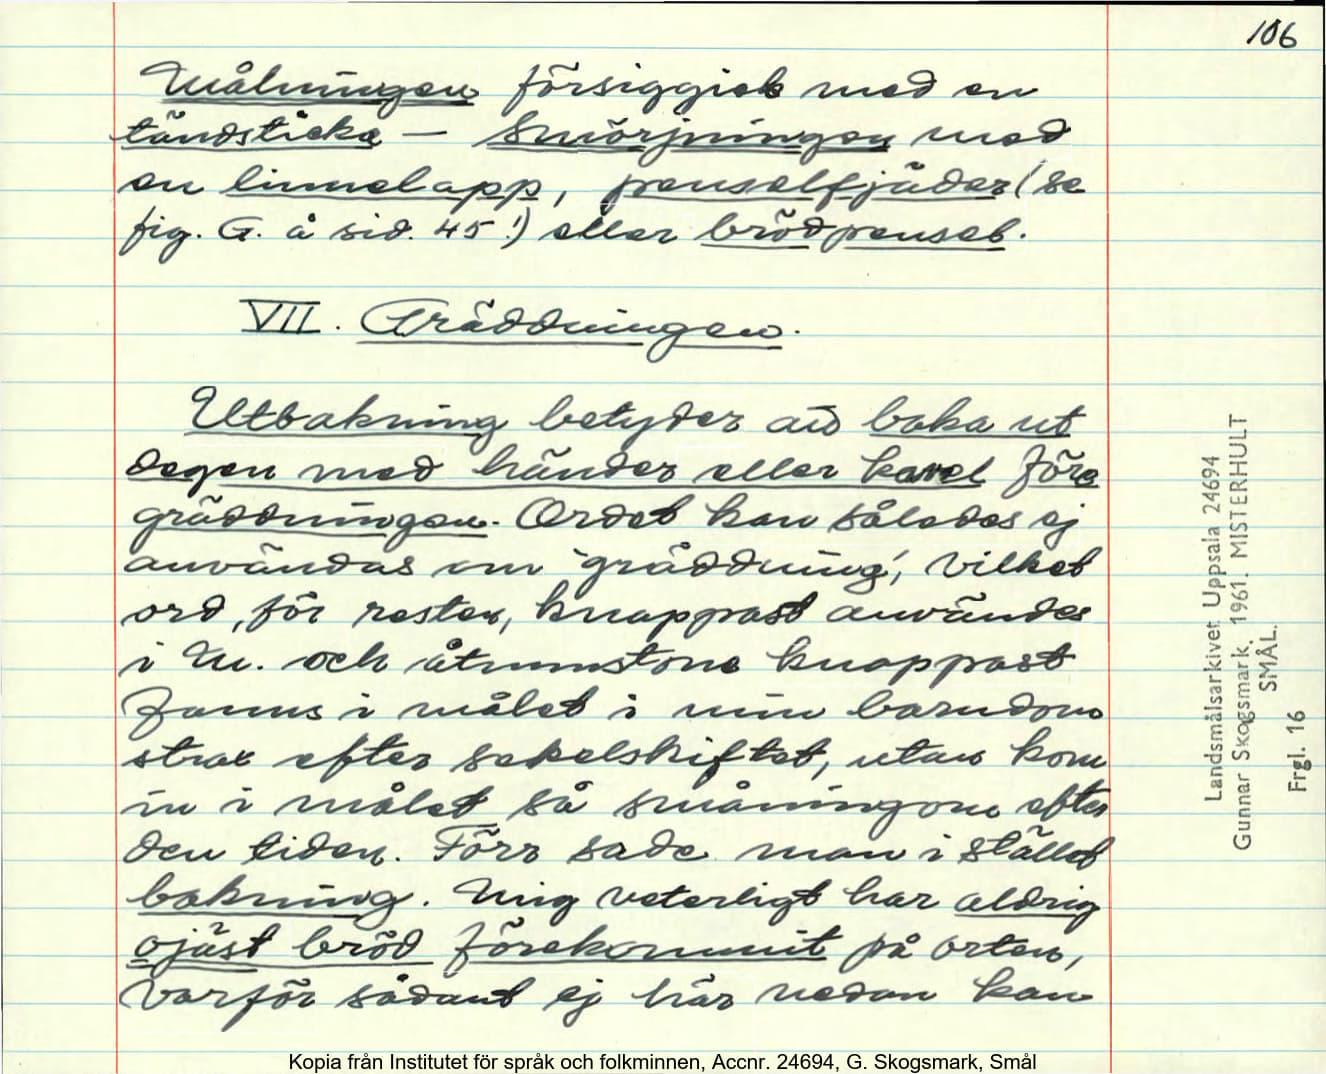 106
Målningen försiggick med en
tändsticka — Smörjningen med
en linnelapp, penselfjäder (se
fig. G. å sid. 45!) eller brödpensel.
VII. Gräddningen.
Utbakning betyder att baka ut
degen med händer eller kavel före
gräddningen. Ordet kan således ej
användas om "gräddning", vilket
ord, för resten, knappast användes
i M. och åtminstone knappast
fanns i målet i min barndom
strax efter sekelskiftet, utan kom
in i målet så småningom efter
den tiden. Förr sade man i stället
bakning. Mig veterligt har aldrig
ojäst bröd förekommit på orten,
varför sådant ej här nedan kan
Landsmålsarkivet Uppsala 24694
Gunnar Skogsmark. 1961. MISTERHULT
SMÅL.
Frgl. 16
Kopia från Institutet för språk och folkminnen, Accnr. 24694, G. Skogsmark, Smål